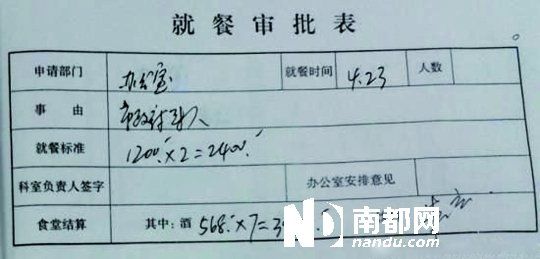 就餐审批表
申请部门 办公室 就餐时间 4.23 人数
事由
就餐标准 1200×2=2400
科室负责人签字 办公室安排意见
食堂结算 其中:酒 568×7=
南都网
nandu.com